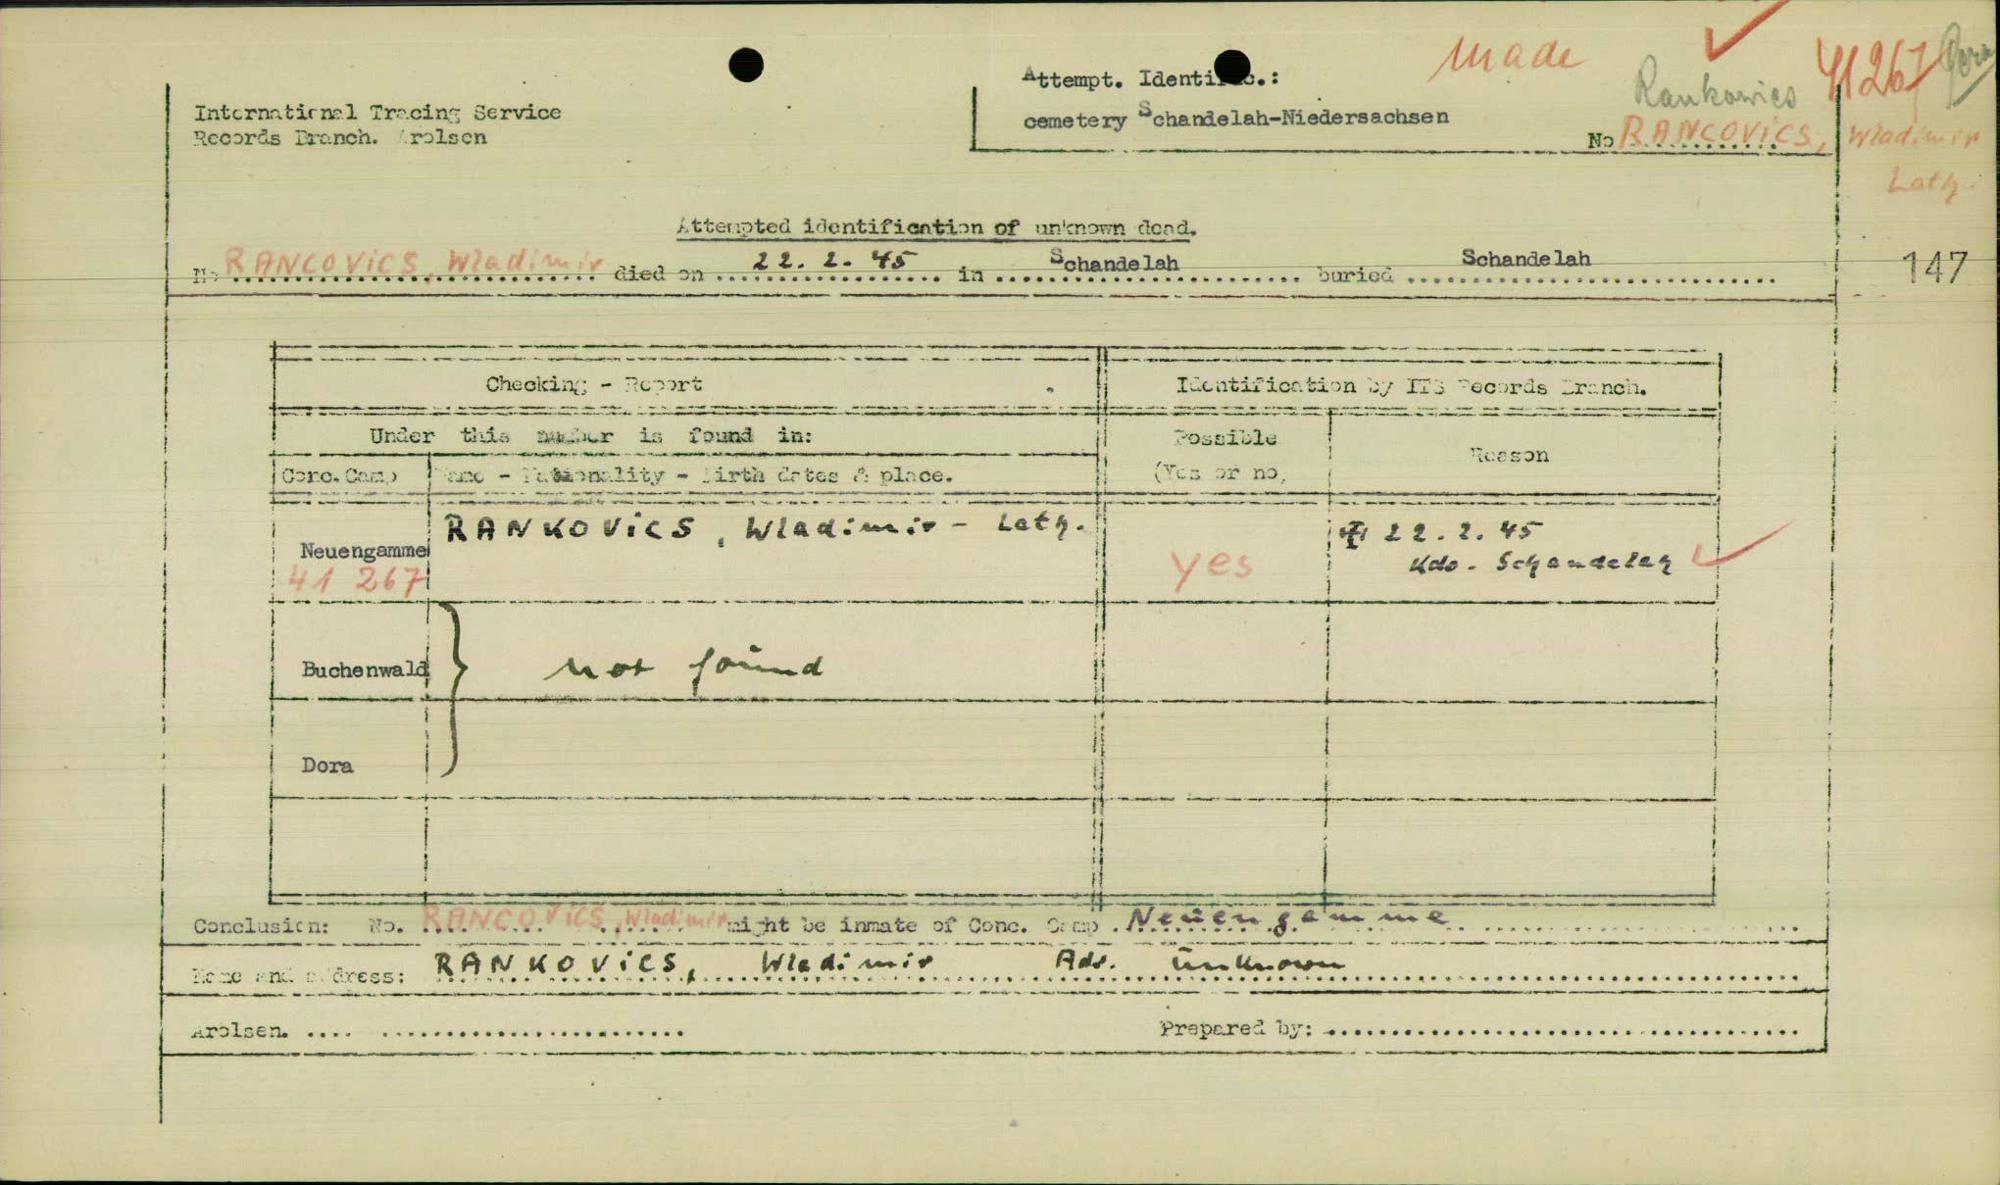 made
41267
Attempt. Identific.:
Rankovics
International Tracing Service
cemetery Schandelah-Niedersachsen
Records Branch. Arolsen
No RANCOVICS, Wladimir
Leth.
Attempted identification of unknown dead.
No RANCOVICS, Wladimir died on 22. 2. 45 in Schandelah buried Schandelah
147
Checking - Report
Identification by ITS Records Branch.
Under this number is found in:
Possible
(Yes or no)
Reason
Conc. Camp
Name - Nationality - Birth dates & place.
Neuengamme
41 267
RANKOVICS, Wladimir - Leth.
yes
22. 2. 45
Kdo. Schandelah
Buchenwald
not found
Dora
Conclusion: No. RANCOVICS, Wladimir might be inmate of Conc. Camp Neuengamme
Name and address: RANKOVICS, Wladimir Adr. unknown
Arolsen.
Prepared by: